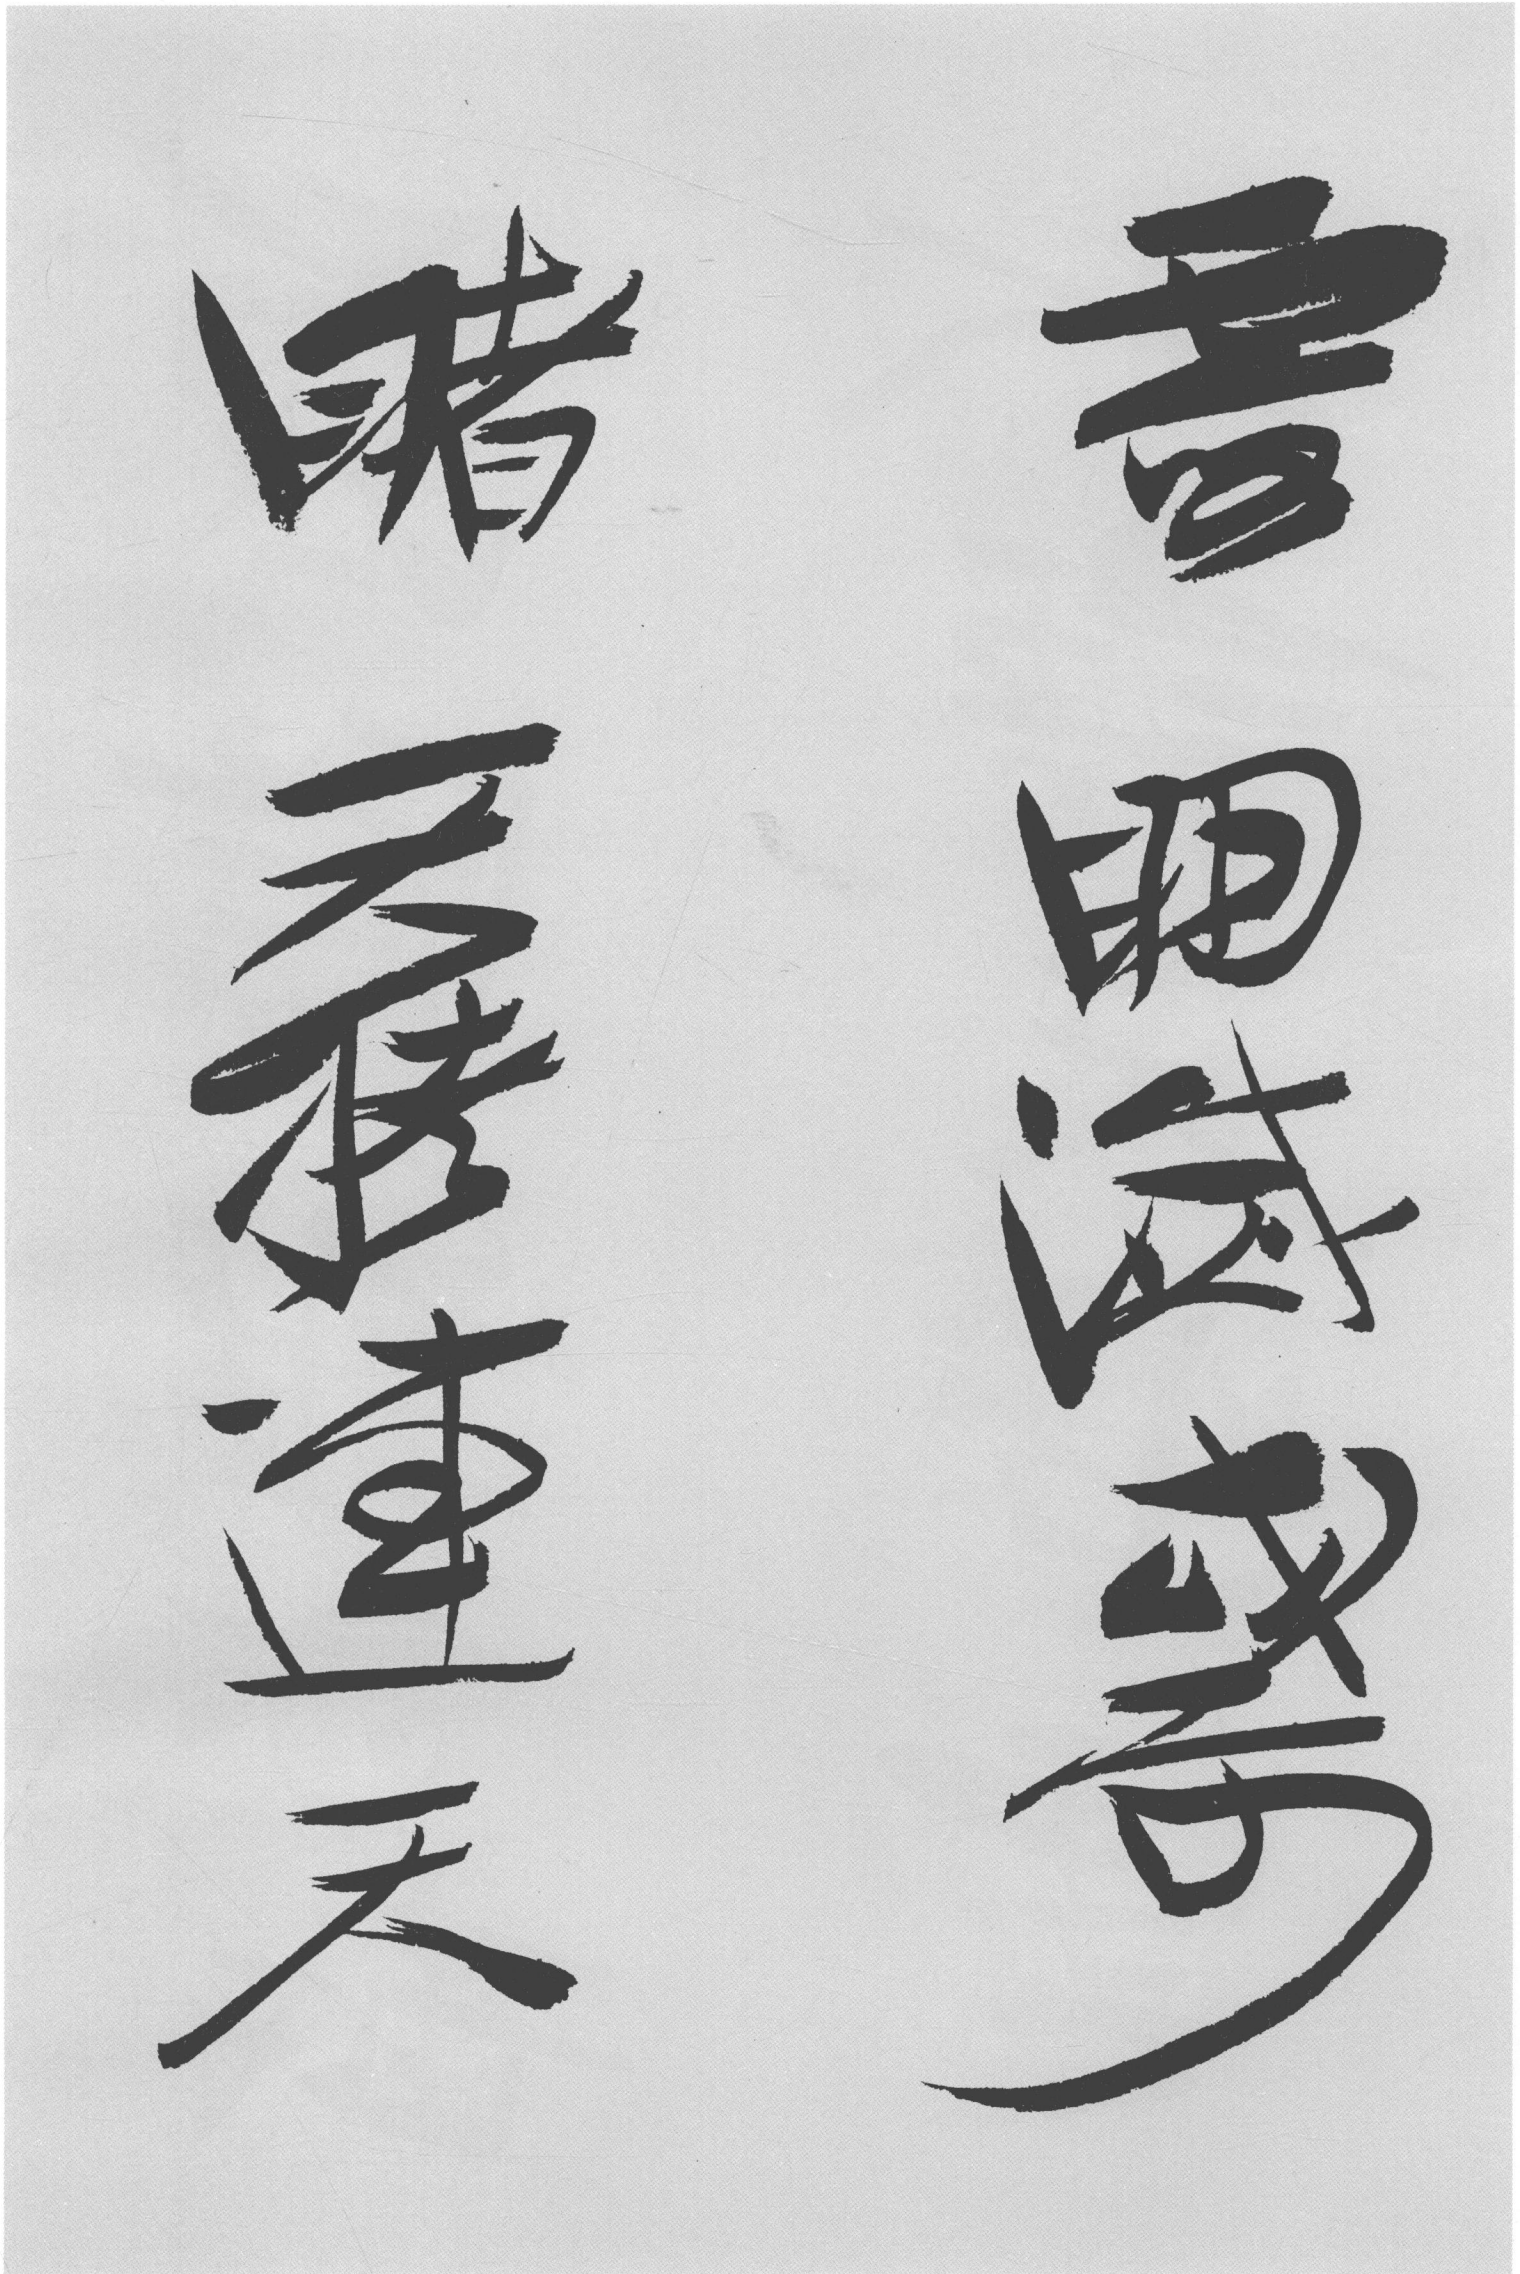 明滅或可
睹天姥連天